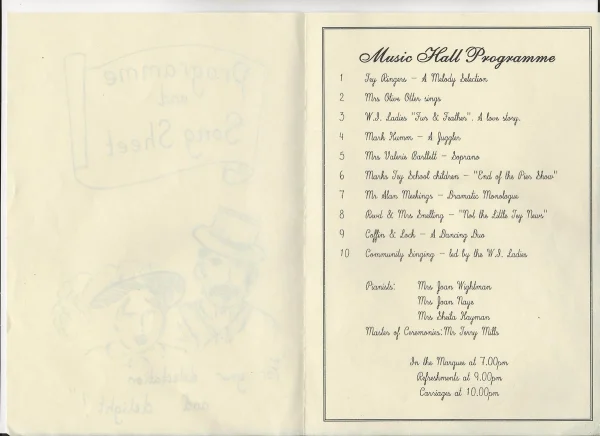 Programme
and
Song Sheet
and delight!
Music Hall Programme
1 Tey Ringers – A Melody Selection
2 Mrs Olive Otter sings
3 W.I. Ladies "Fur & Feather". A love story.
4 Mark Humm – A Juggler
5 Mrs Valerie Bartlett – Soprano
6 Marks Tey School children – "End of the Pier Show"
7 Mr Alan Meekings – Dramatic Monologue
8 Revd & Mrs Snelling – "Not the Little Tey News"
9 Coffin & Loch – A Dancing Duo
10 Community Singing – led by the W.I. Ladies
Pianists: Mrs Joan Wightman
Mrs Joan Nays
Mrs Sheila Hayman
Master of Ceremonies: Mr Terry Mills
In the Marquee at 7.00pm
Refreshments at 9.00pm
Carriages at 10.00pm